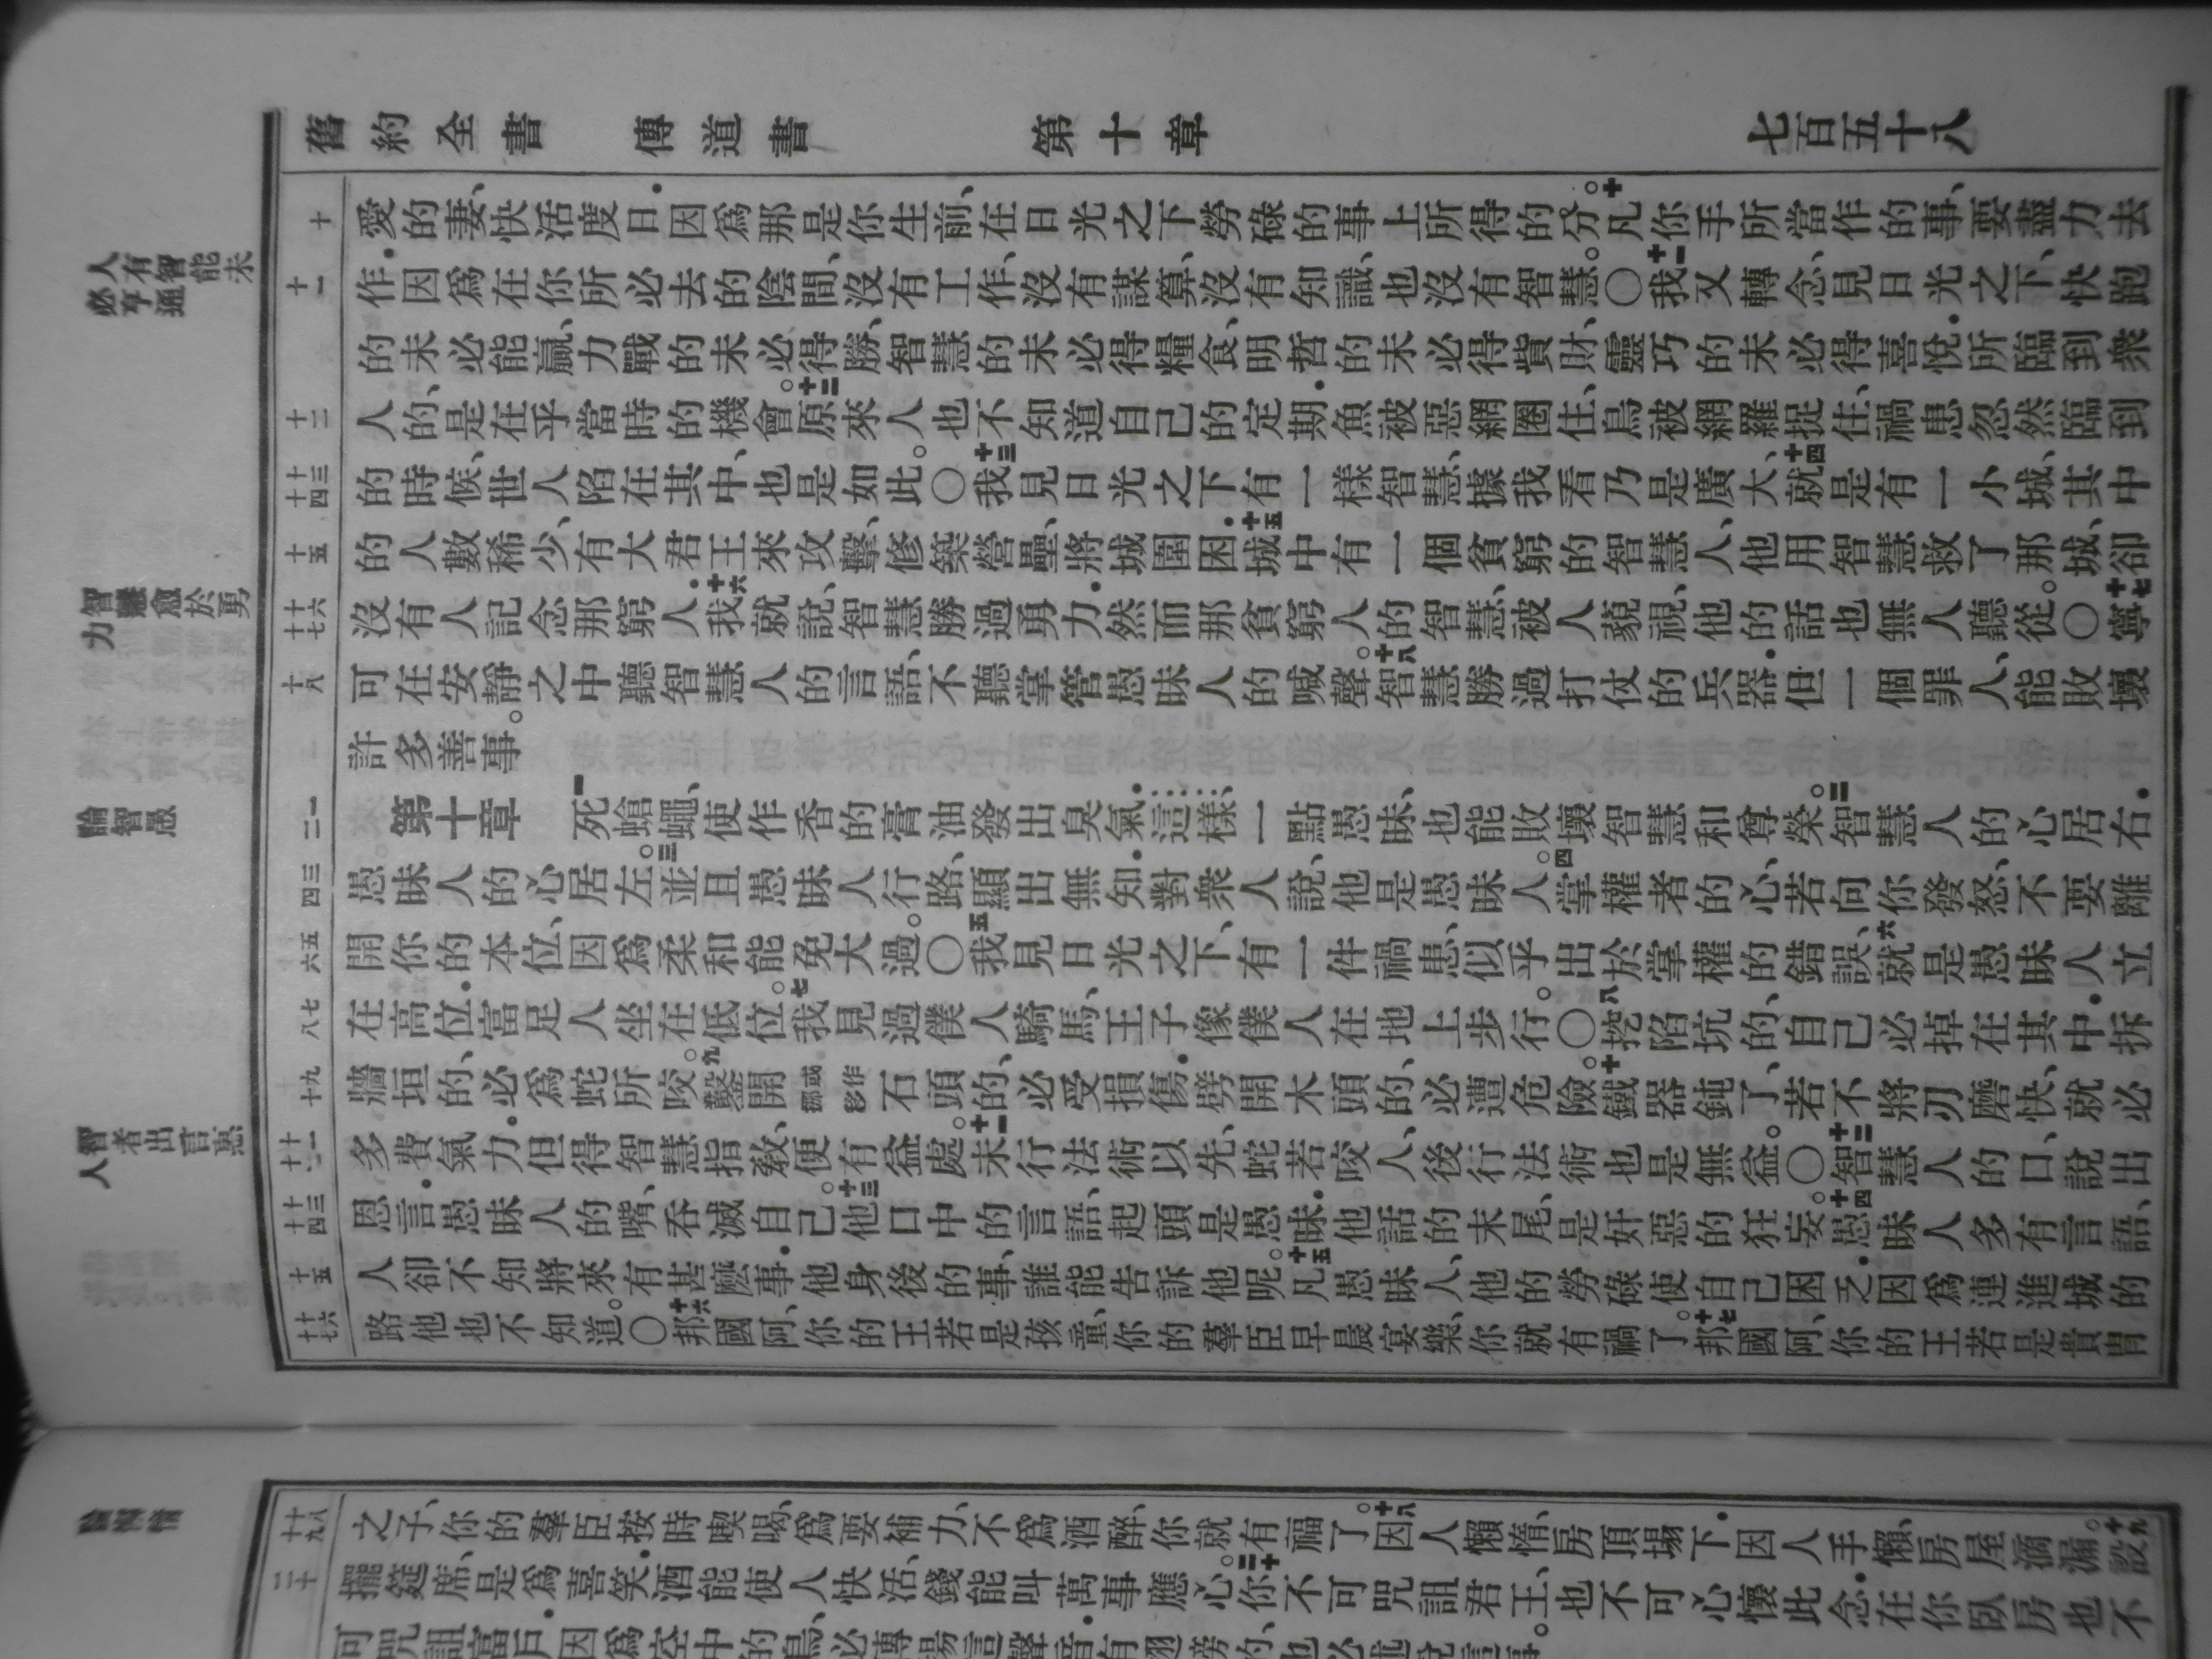 舊約全書 傳道書 第十章 七百五十八
十
愛的妻、快活度日．因爲那是你生前、在日光之下勞碌的事上所得的分。十凡你手所當作的事、要盡力去
人有智能未必亨通
十一
作．因爲在你所必去的陰間、沒有工作、沒有謀算、沒有知識、也沒有智慧。○十一我又轉念、見日光之下、快跑
的未必能贏、力戰的未必得勝、智慧的未必得糧食、明哲的未必得貲財、靈巧的未必得喜悅．所臨到衆
十二
人的、是在乎當時的機會。十二原來人也不知道自己的定期．魚被惡網圈住、鳥被網羅捉住、禍患忽然臨到
十三 十四
的時候、世人陷在其中、也是如此。○十三我見日光之下有一樣智慧、據我看乃是廣大、十四就是有一小城、其中
十五
的人數稀少、有大君王來攻擊、修築營壘、將城圍困．十五城中有一個貧窮的智慧人、他用智慧救了那城、卻
智慧愈於勇力
十六 十七
沒有人記念那窮人．十六我就說、智慧勝過勇力．然而那貧窮人的智慧、被人藐視、他的話也無人聽從。○十七寧
十八
可在安靜之中聽智慧人的言語、不聽掌管愚昧人的喊聲。十八智慧勝過打仗的兵器．但一個罪人、能敗壞
許多善事。
論智愚
一 二
第十章 一死蒼蠅、使作香的膏油發出臭氣．這樣、一點愚昧、也能敗壞智慧和尊榮。二智慧人的心居右．
三 四
愚昧人的心居左。三並且愚昧人行路、顯出無知．對衆人說、他是愚昧人。四掌權者的心、若向你發怒、不要離
五 六
開你的本位、因爲柔和能免大過。○五我見日光之下、有一件禍患、似乎出於掌權的錯誤、六就是愚昧人立
七 八
在高位．富足人坐在低位。七我見過僕人騎馬、王子像僕人在地上步行。○八挖陷坑的、自己必掉在其中．拆
九 十
牆垣的、必爲蛇所咬。九鑿開或作挪移石頭的、必受損傷．劈開木頭的、必遭危險。十鐵器鈍了、若不將刃磨快、就必
智者出言惠人
十一 十二
多費氣力．但得智慧指教、便有益處。十一未行法術以先、蛇若咬人、後行法術也是無益。○十二智慧人的口、說出
十三 十四
恩言．愚昧人的嘴、吞滅自己。十三他口中的言語、起頭是愚昧．他話的末尾、是奸惡的狂妄。十四愚昧人多有言語、
十五
人卻不知將來有甚麽事．他身後的事、誰能告訴他呢。十五凡愚昧人、他的勞碌使自己困乏．因爲連進城的
十六 十七
路他也不知道。○十六邦國阿、你的王若是孩童、你的羣臣早晨宴樂、你就有禍了。十七邦國阿、你的王若是貴冑
論懈惰
十八 十九
之子、你的羣臣按時喫喝、爲要補力、不爲酒醉、你就有福了。十八因人懶惰、房頂塌下．因人手懶、房屋滴漏。十九設
二十
擺筵席、是爲喜笑．酒能使人快活、錢能叫萬事應心。二十你不可咒詛君王、也不可心懷此念．在你臥房也不
可咒詛富戶．因爲空中的鳥、必傳揚這聲音．有翅膀的、也必述說這事。